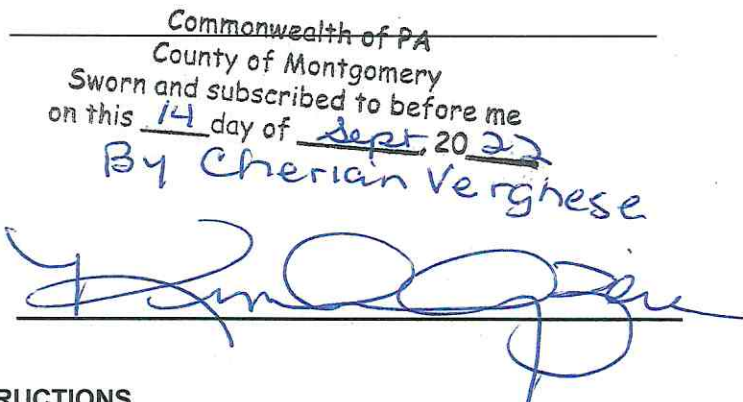 Commonwealth of PA
County of Montgomery
Sworn and subscribed to before me
on this 14 day of Sept, 20 22
By Cherian Verghese
RUCTIONS